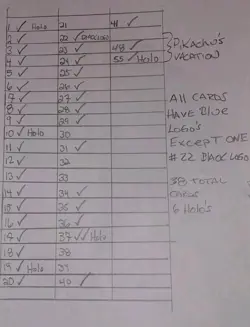 1 ✓ Holo 21 41 ✓
2 ✓ 22 ✓ BLACK LOGO
3 ✓ 23 ✓ 48 ✓
4 ✓ 24 ✓ 55 ✓ Holo
5 ✓ 25 ✓
6 ✓ 26 ✓
7 ✓ 27 ✓
8 ✓ 28 ✓
9 ✓ 29 ✓
10 ✓ Holo 30
11 ✓ 31 ✓
12 ✓ 32
13 ✓ 33
14 ✓ 34 ✓
15 ✓ 35 ✓
16 ✓ 36 ✓
37 ✓✓ Holo
18 ✓ 38
19 ✓ Holo
20 ✓ 40 ✓
PIKACHU'S
VACATION
All CARDS
HAVE BLUE
LOGO'S
EXCEPT ONE
#22 BLACK LOGO
38 TOTAL
CARDS
6 Holo's